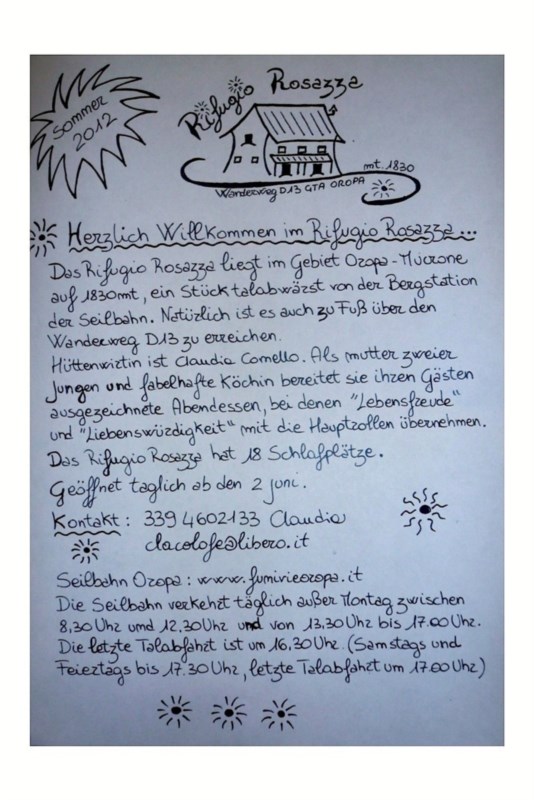 Sommer
2012
Rifugio Rosazza
mt. 1830
Wanderweg D13 GTA OROPA
Herzlich Willkommen im Rifugio Rosazza...
Das Rifugio Rosazza liegt im Gebiet Oropa-Mucrone
auf 1830mt, ein Stück talabwärst von der Bergstation
der Seilbahn. Natüzlich ist es auch zu Fuß über den
Wanderweg D13 zu erreichen.
Hüttenwirtin ist Claudia Comello. Als mutter zweier
Jungen und fabelhafte Köchin bereitet sie ihren Gästen
ausgezeichnete Abendessen, bei denen "Lebensfreude"
und "Liebenswürdigkeit" mit die Hauptrollen übernehmen.
Das Rifugio Rosazza hat 18 Schlafplätze.
Geöffnet taglich ab den 2 juni.
Kontakt: 339 4602133 Claudia
clacolofe@libero.it
Seilbahn Oropa: www.funivieoropa.it
Die Seilbahn verkehrt täglich außer Montag zwischen
8,30 Uhr und 12,30 Uhr und von 13,30 Uhr bis 17.00 Uhr.
Die letzte Talabfahrt ist um 16,30 Uhr. (Samstags und
Feiertags bis 17.30 Uhr, letzte Talabfahrt um 17.00 Uhr)